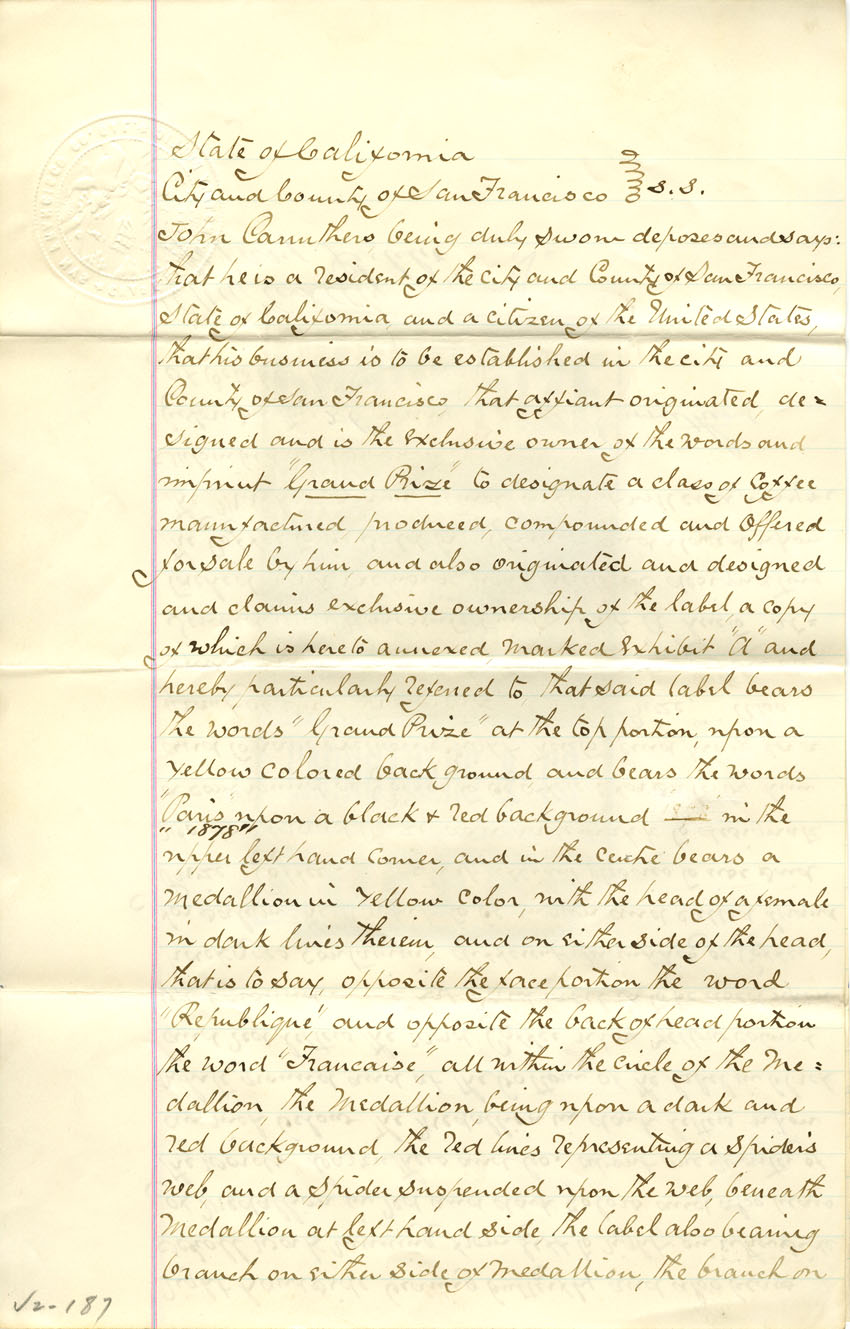 State of California
City and County of San Francisco } s.s.
John Caruthers, being duly sworn deposes and says:
that he is a resident of the city and County of San Francisco,
State of California, and a citizen of the United States,
that his business is to be established in the city and
County of San Francisco, that affiant originated, de=
signed and is the exclusive owner of the words and
imprint "Grand Prize" to designate a class of Coffee
manufactured produced, compounded and Offered
for sale by him, and also originated and designed
and claims exclusive ownership of the label, a copy
of which is hereto annexed, marked Exhibit "A" and
hereby particularly referred to, that said label bears
the words "Grand Prize" at the top portion, upon a
Yellow colored back ground, and bears the words
"Paris" upon a black & red background in the
"1878"
upper left hand corner, and in the centre bears a
Medallion in Yellow color, with the head of a female
in dark lines therein, and on either side of the head,
that is to say, opposite the face portion the word
"Republique", and opposite the back of head portion
the word "Francaise", all within the circle of the Me=
dallion, the Medallion, being upon a dark and
red background, the red lines representing a spider's
web, and a spider suspended upon the web, beneath
Medallion at left hand side, the label also bearing
branch on either side of Medallion, the branch on
V2-187